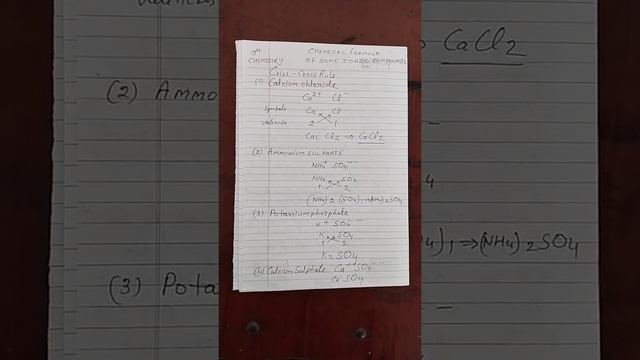 9th CHEMICAL FORMULA
CHEMISTRY OF SOME IONIC COMPOUNDS
Criss-Cross Rule
(1) Calcium chloride
Ca2+ Cl-
Symbols Ca Cl
valencies 2 1
Ca1 Cl2 ⇒ CaCl2
(2) AMMONIUM SULPHATE
NH4+ SO4--
NH4 SO4
1 2
(NH4)2 (SO4)1 ⇒ (NH4)2SO4
(3) Potassium phosphate
K+ SO4--
K SO4
1 2
K2 SO4
(4) Calcium Sulphate Ca++ SO4--
Ca SO4
CaCl2
(2) AMMO
(3) Pota
4)1 ⇒ (NH4)2SO4